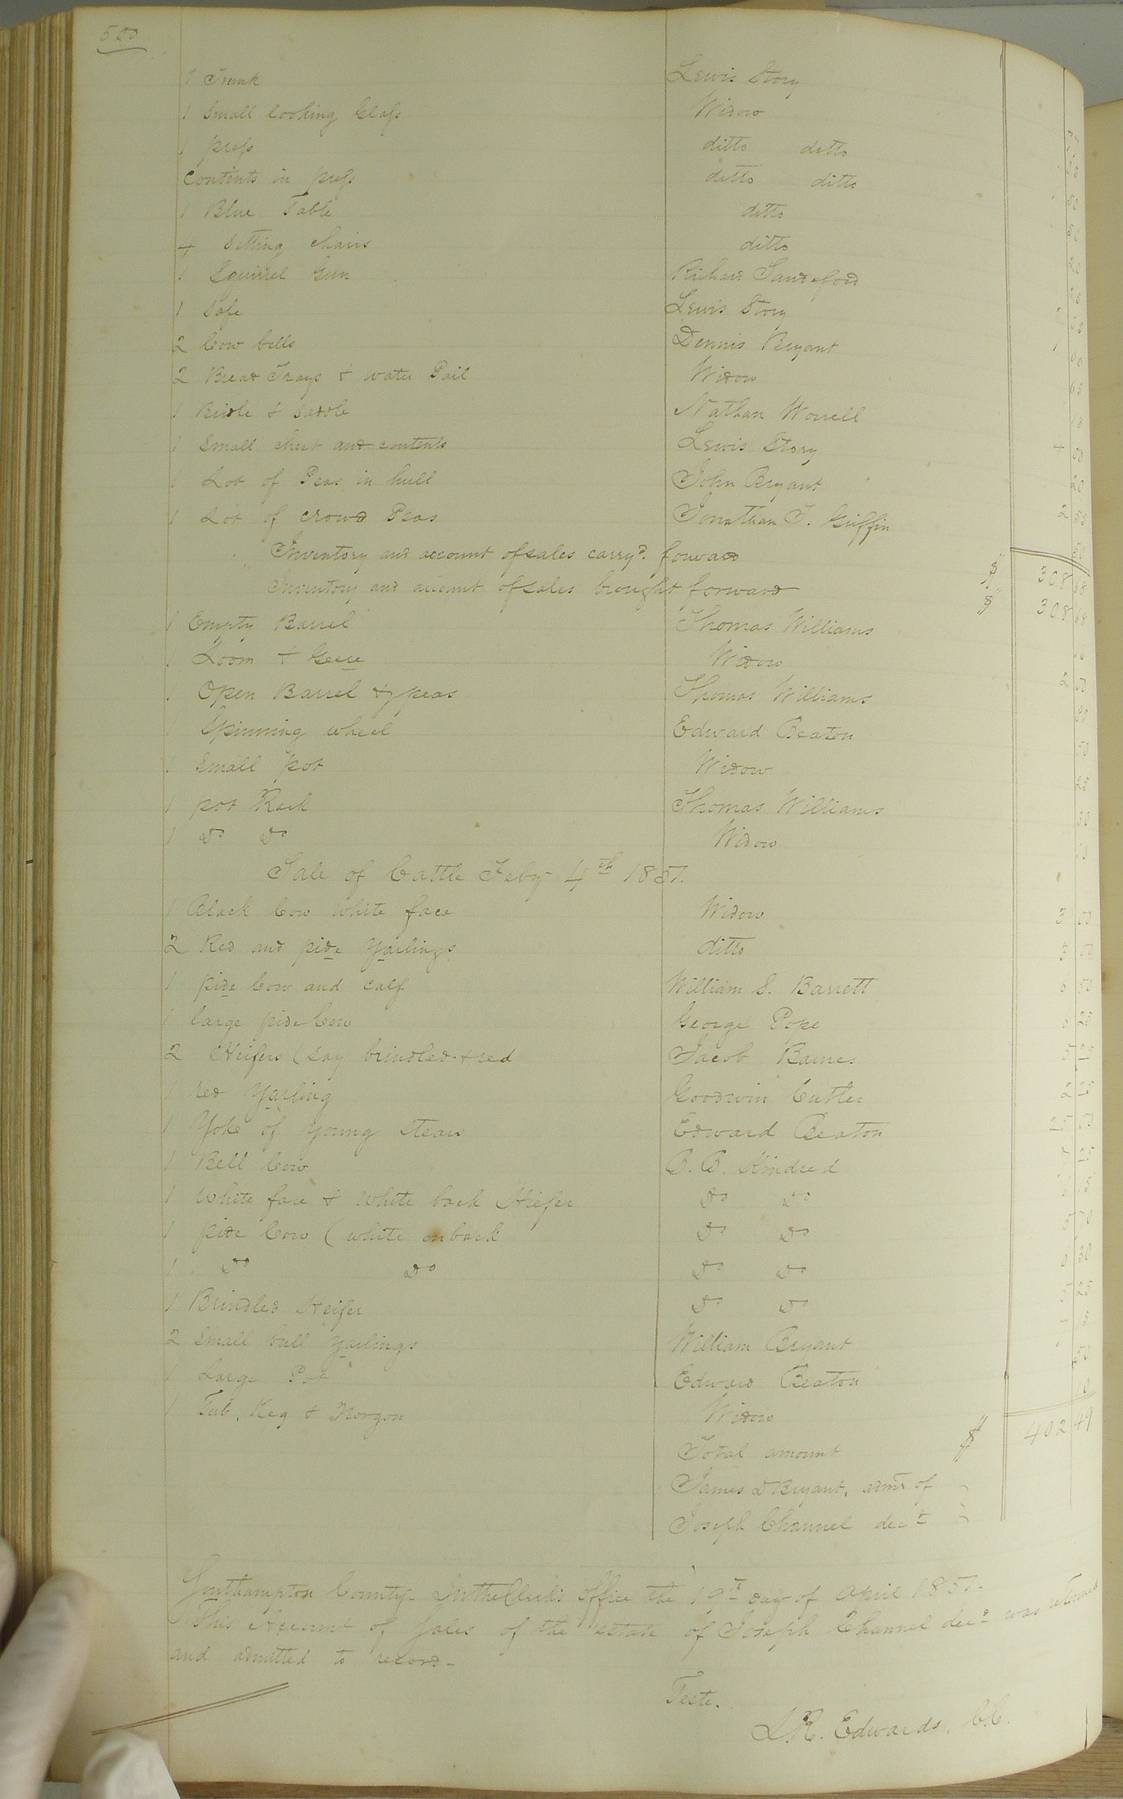 500
1 Trunk Lewis Story
1 Small looking Glass Widow
1 press ditto ditto
Contents in press ditto ditto
1 Blue Table ditto
4 Setting chairs ditto
1 Squirrel Gun Richard Sandeford
1 Safe Lewis Story
2 Cow bells Dennis Bryant
2 Bread Trays & water Pail Widow
1 Bridle & Saddle Nathan Worrell
1 Small chest and contents Lewis Story 4
1 Lot of Peas in hull John Bryant
1 Lot of crowd Peas Jonathan T. Griffin 2
Inventory and account of sales carryd. forward $ 308 68
Inventory and account of sales brought forward $ 308 68
1 Empty Barrel Thomas Williams
1 Loom & Geese Widow 2 50
1 Open Barrel & peas Thomas Williams
1 Spinning wheel Edward Beaton 50
1 Small pot Widow 25
1 pot Rack Thomas Williams
1 Do Do Widow
Sale of Cattle Feby 4th 1851.
1 Black Cow White face Widow 3
2 Red and pide Yarlings ditto 5
1 pide Cow and calf William S. Barrett
1 large pide Cow George Pope 25
2 Heifers (say brindled & red Jacob Barnes
1 red Yarling Goodwin Cutler 2 25
1 Yoke of Young stears Edward Beaton 25
1 Bell Cow B. B. Kindred
1 White face & White back Hiefer Do Do
1 pide Cow (white on back Do Do
1 Do Do Do Do
1 Brindled Heifer Do Do
2 Small bull yarlings William Bryant
1 Large Pot Edward Beaton
1 Tub, Keg & Noggin Widow
Total amount $ 402 49
James D Bryant, admr of
Joseph Channel decd
Southampton County - In the Clerk's office the 19th day of April 1851.
This Account of Sales of the estate of Joseph Channel decd was returned
and admitted to record -
Teste.
L. R. Edwards, C.C.